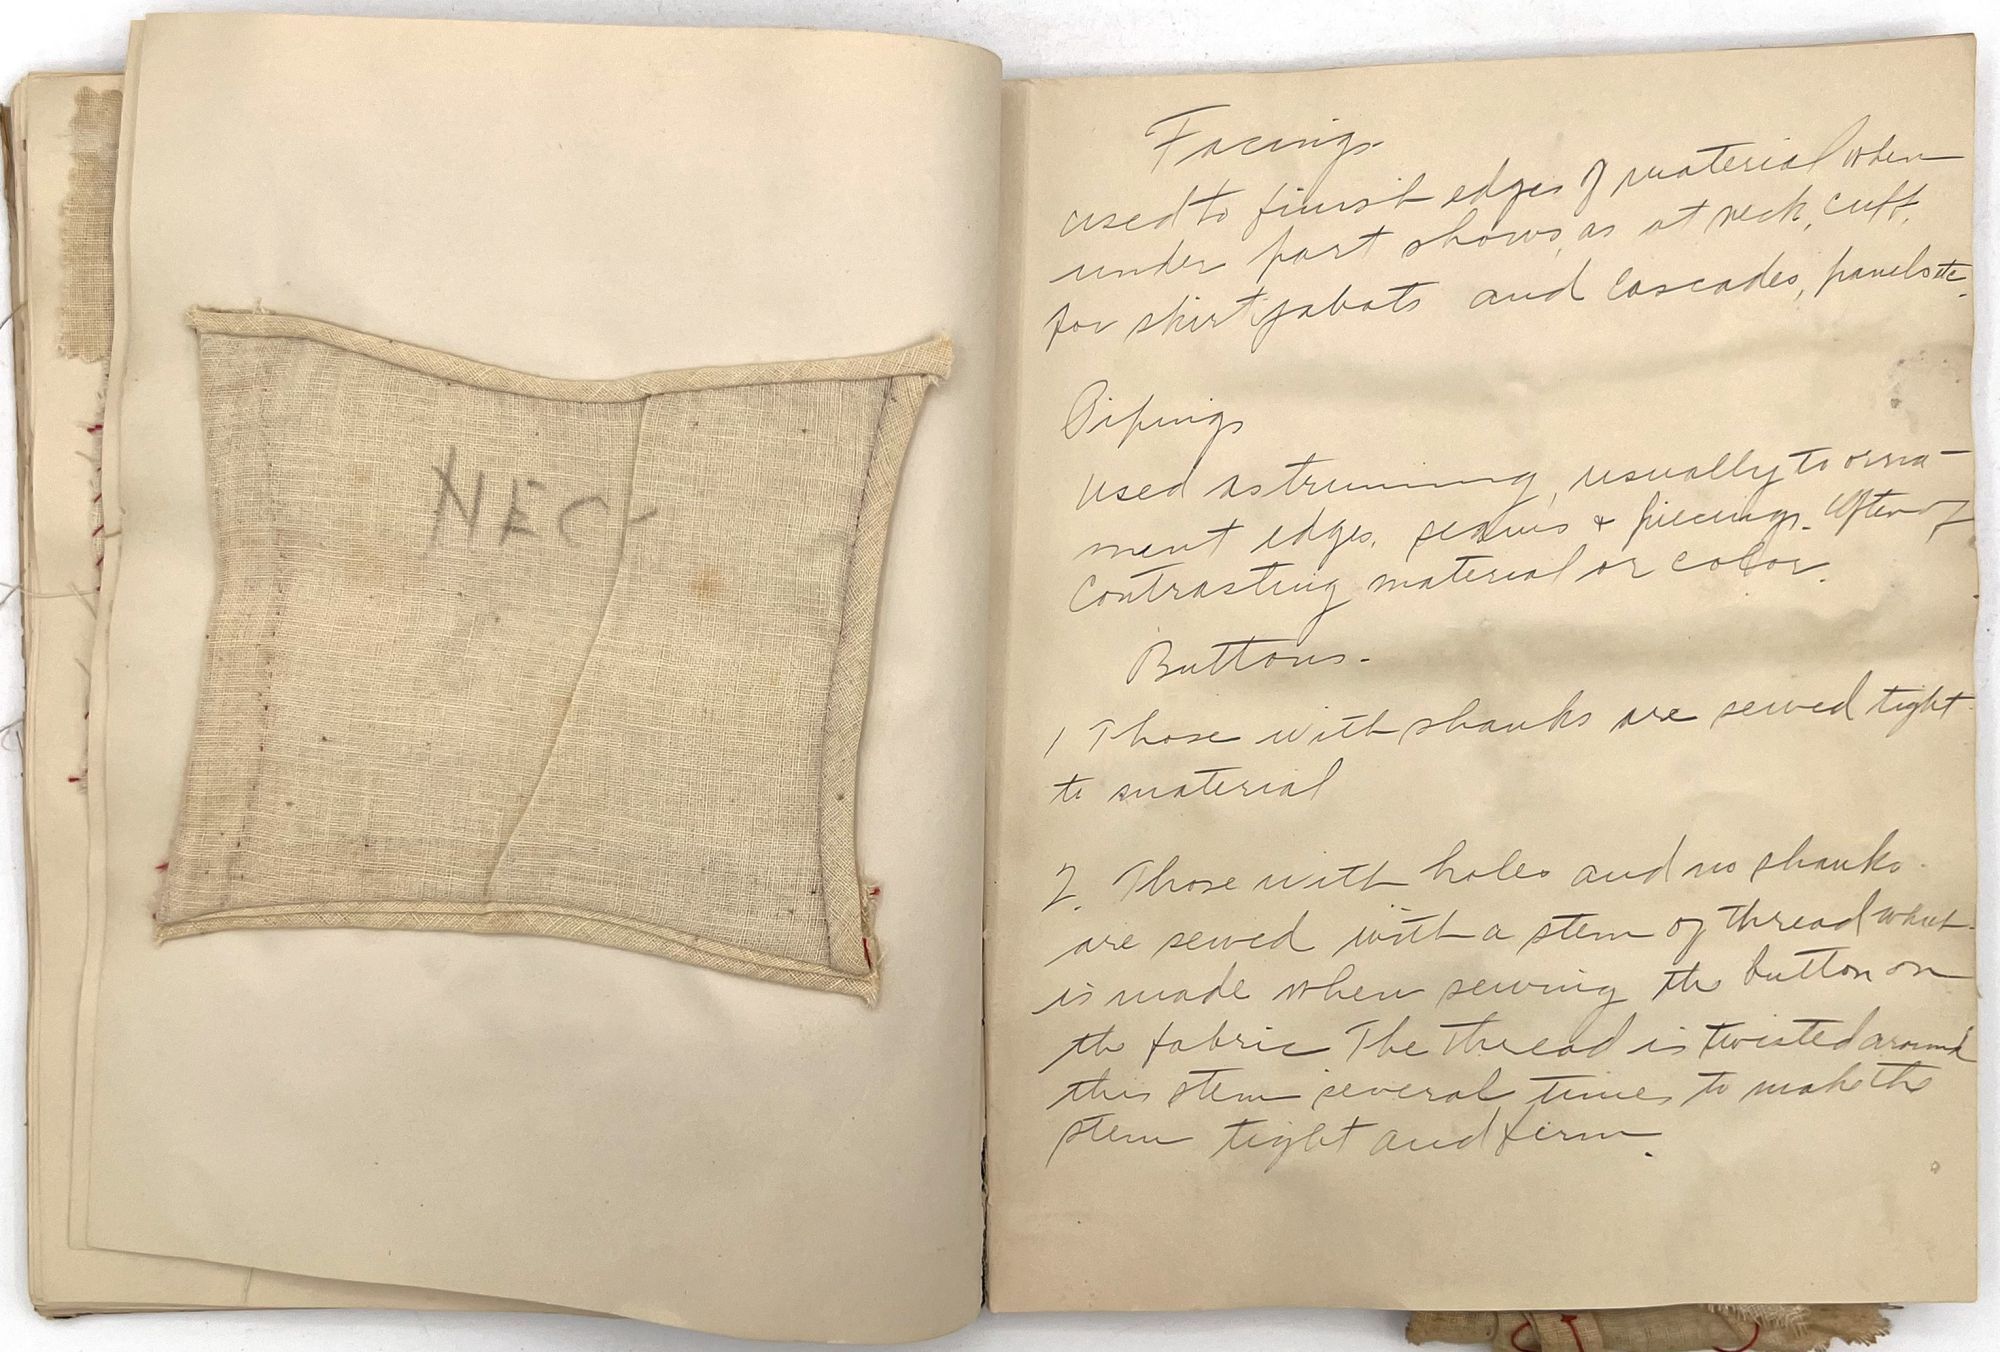 NEC-
Facings
used to finish edges of material when
under part shows, as at neck, cuff,
for skirt jabots and cascades, panels etc.
Pipings
used as trimming, usually to orna-
ment edges, seams & piecings. Often of
contrasting material or color.
Buttons.
1 Those with shanks are sewed tight
to material
2. Those with holes and no shanks
are sewed with a stem of thread which
is made when sewing the button on
the fabric The thread is twisted around
this stem several times to make the
stem tight and firm.